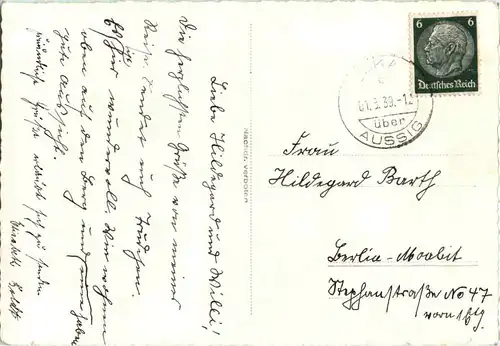 Liebe Hildegard und Willi!
Die herzlichsten Grüße von meiner
Reise sendet euch Trudchen.
Es ist hier wundervoll. Wir wohnen
oben auf dem Berg und haben
gute Aussicht.
Grüße erlaubt sich zu senden
Nachdr. verboten
6 6
Deutsches Reich
01.3.39.-12
über
AUSSIG
Frau
Hildegard Barth
Berlin-Moabit
Stephanstraße No 47
vorn